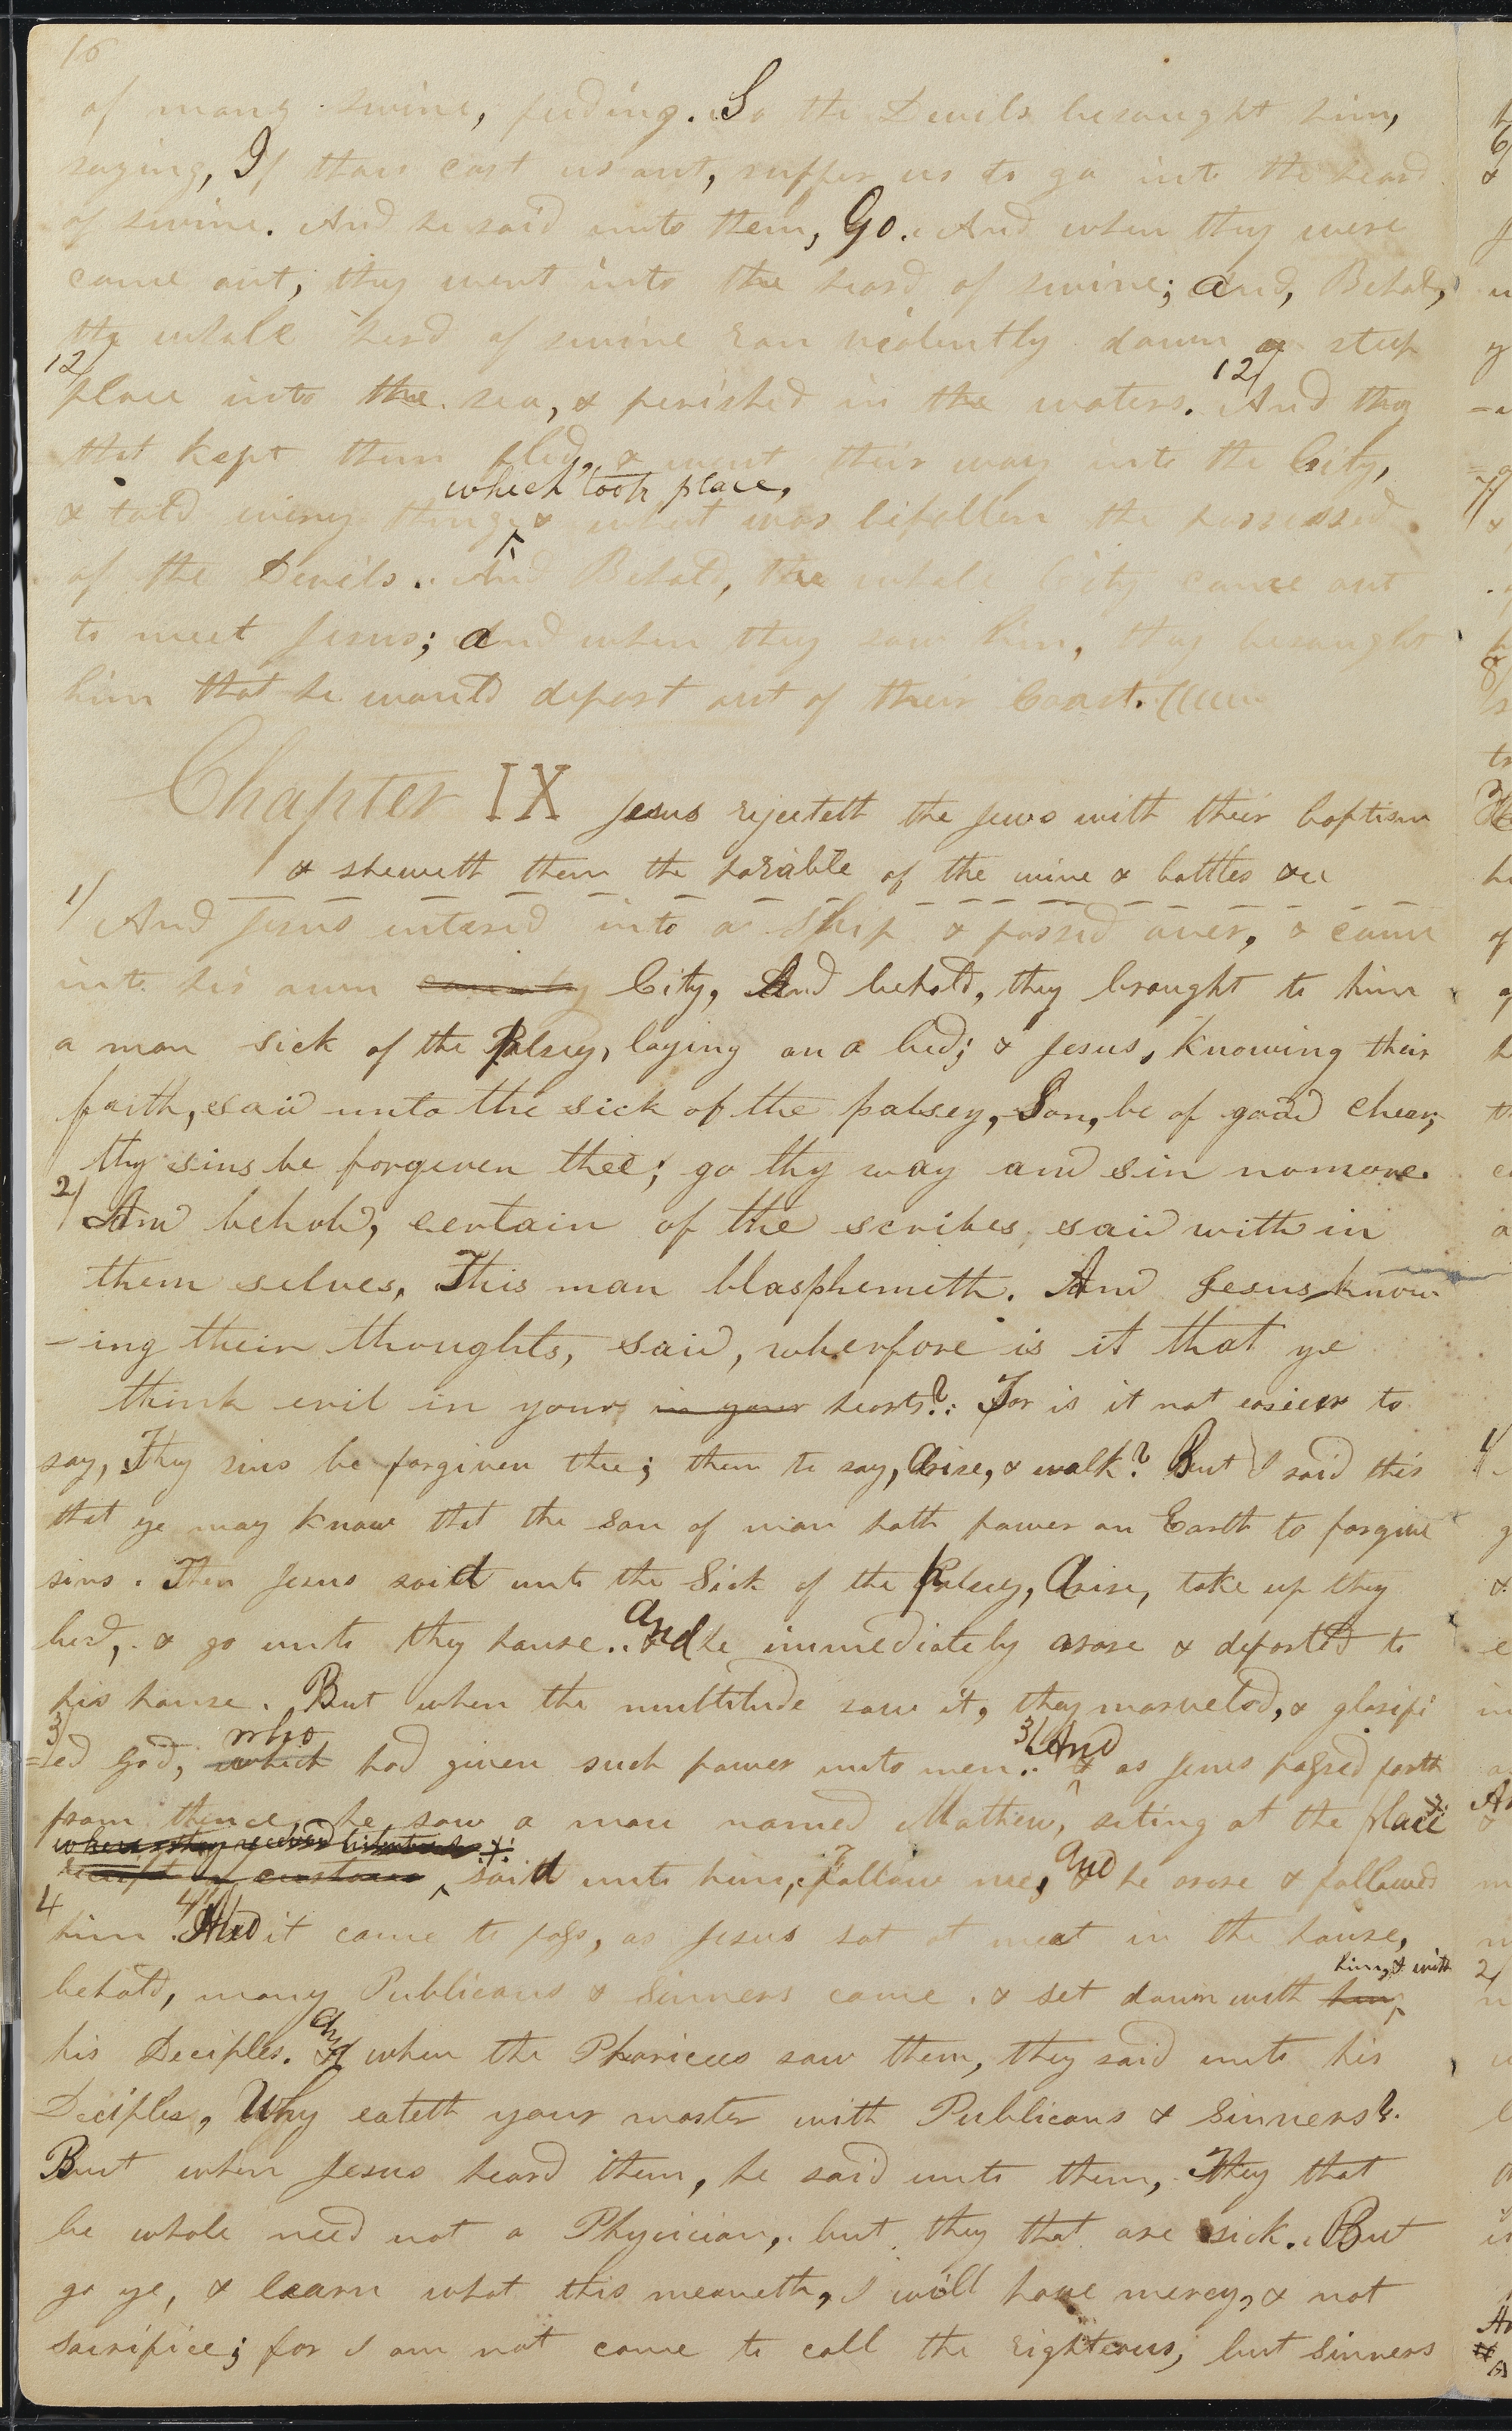 16
of many swine, feeding. So the Devils besaught him,
saying, If thou cast us out, suffer us to go into the heard
of swine. And he said unto them, Go. And when they were
come out, they went into the heard of swine; and, Behold,
the whole herd of swine ran violently down a steep
12/
place into the sea, & perished in the waters. 12/ And they
that kept them fled, & went their way into the City,
which took place,
& told every thing & what was befallen the possessed
of the Devils. And Behold, the whole City came out
to meet Jesus; and when they saw him, they besaught
him that he would depart out of their Coast.
Chapter IX Jesus rejecteth the Jews with their baptism
& sheweth them the parable of the wine & bottles &c
1/ And Jesus entered into a Ship & passed over, & came
into his own country City, And behold, they brought to him
a man sick of the Palsey, laying on a bed; & Jesus, knowing their
faith, said unto the sick of the palsey, Son, be of good cheer;
thy sins be forgeven thee; go thy way and sin nomore.
2/ And behold, certain of the scribes said with in
them selves, This man blasphemeth. And Jesus know
-ing their thoughts, said, wherfore is it that ye
think evil in your in your hearts? For is it not easieer to
say, Thy sins be forgiven thee; then to say, Arise, & walk? But I said this
that ye may know that the son of man hath power on Earth to forgive
sins. Then Jesus said unto the Sick of the Palsey, Arise, take up thy
bed, & go unto thy house. And he immediately arose & departed to
his house. But when the multitude saw it, they marveled, & glorifi
3/ who 3/ And
=ed God, which had given such power unto men. & as Jesus passed forth
from thence, he saw a man named Mathew, siting at the place
where they received
receipt of customs said unto him, Follow me, and he arose & followed
4 him. 4/ And it came to pass, as Jesus sat at meat in the house,
him, & with
behold, many Publicans & Sinners came & set down with him
his Deciples. and when the Pharicees saw them, they said unto his
Deciples, Why eateth your master with Publicans & Sinners?
But when Jesus heard them, he said unto them, They that
be whole need not a Phycician, but they that are sick. But
go ye, & learn what this meaneth, I will have mercy, & not
sacrifice; for I am not come to call the righteous, but sinners